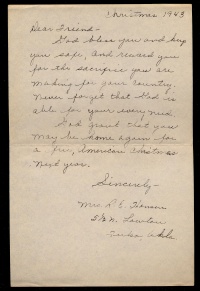 Christmas 1943
Dear Friend-
God bless you and keep
you safe, and reward you
for the sacrifice you are
making for your country.
Never forget that God is
able for your every need.
God grant that you
may be home again for
a free, American Christmas
next year.
Sincerely-
Mrs. R. E.
N. Lawton